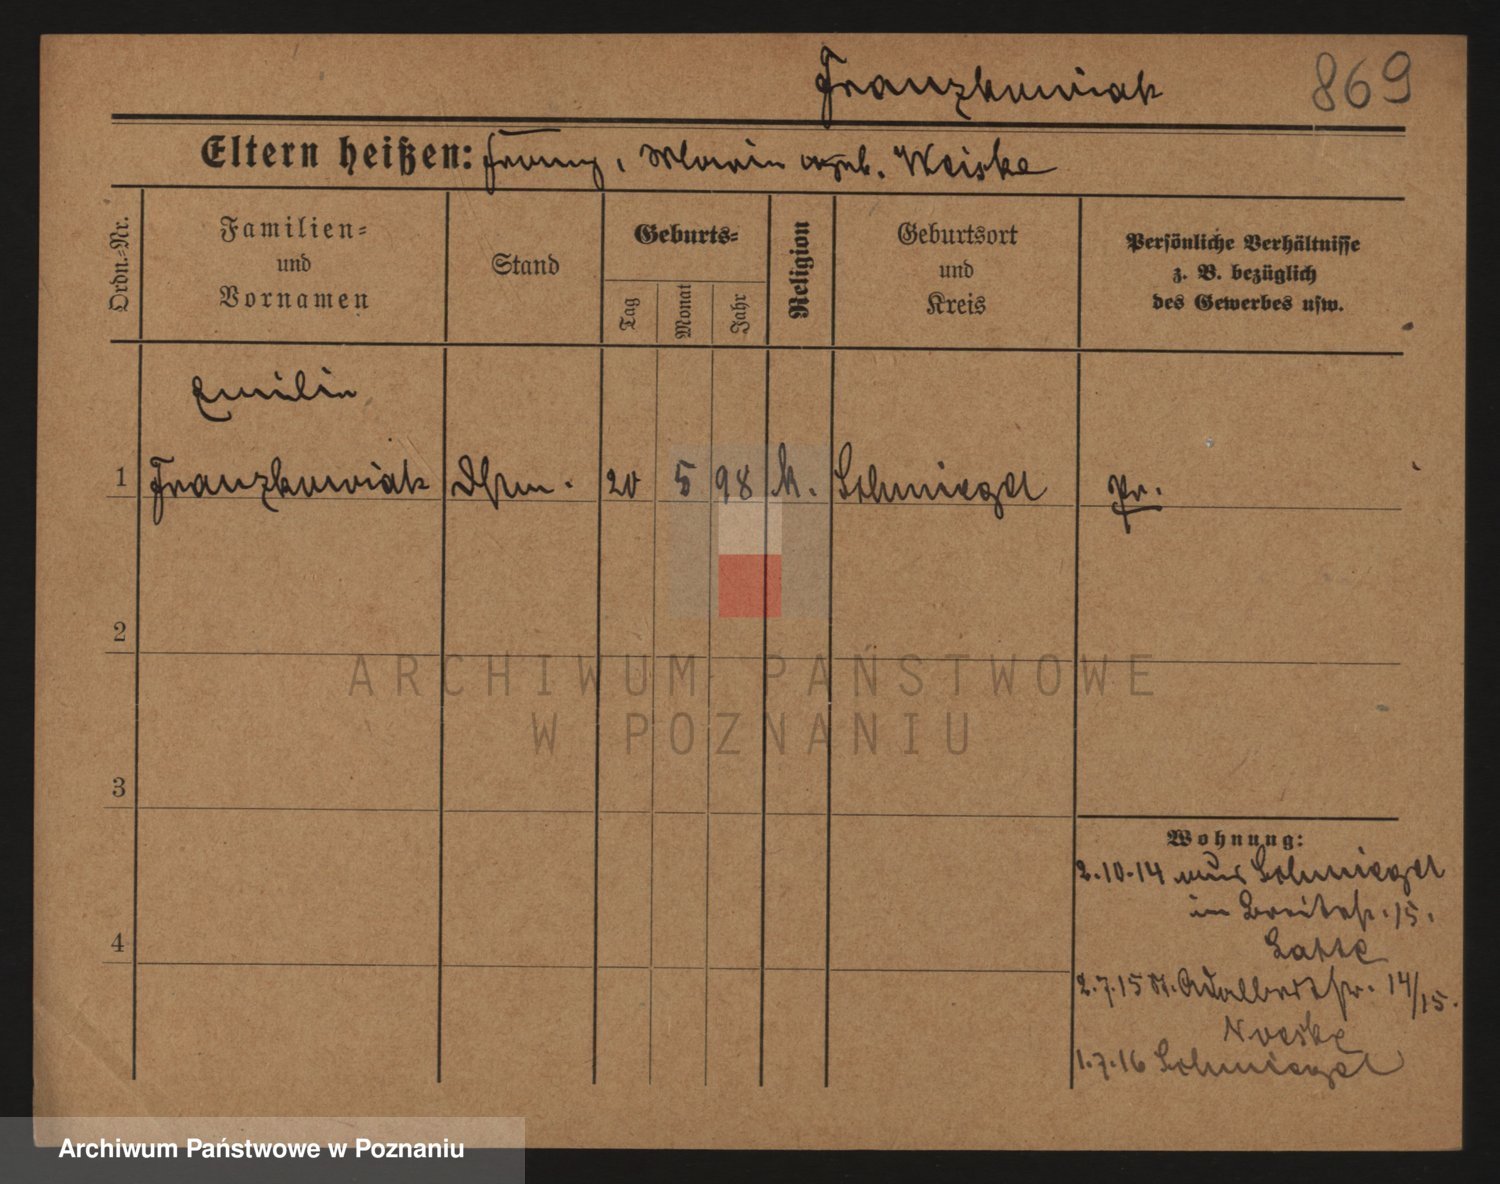 Franzkowiak 869
Eltern heißen: Franz, Marie geb. Weiske
Ordn.-Nr.
Familien-
und
Vornamen
Stand
Geburts-
Tag
Monat
Jahr
Religion
Geburtsort
und
Kreis
Persönliche Verhältnisse
z. B. bezüglich
des Gewerbes usw.
Emilie
1 Franzkowiak 20 5 98 k. Schmiegel Pr.
2
3
4
ARCHIWUM PAŃSTWOWE
W POZNANIU
Wohnung:
2.10.14 aus Schmiegel
in Breitestr. 15.
2.7.15 St. Adalbertstr. 14/15.
1.7.16 Schmiegel
Archiwum Państwowe w Poznaniu